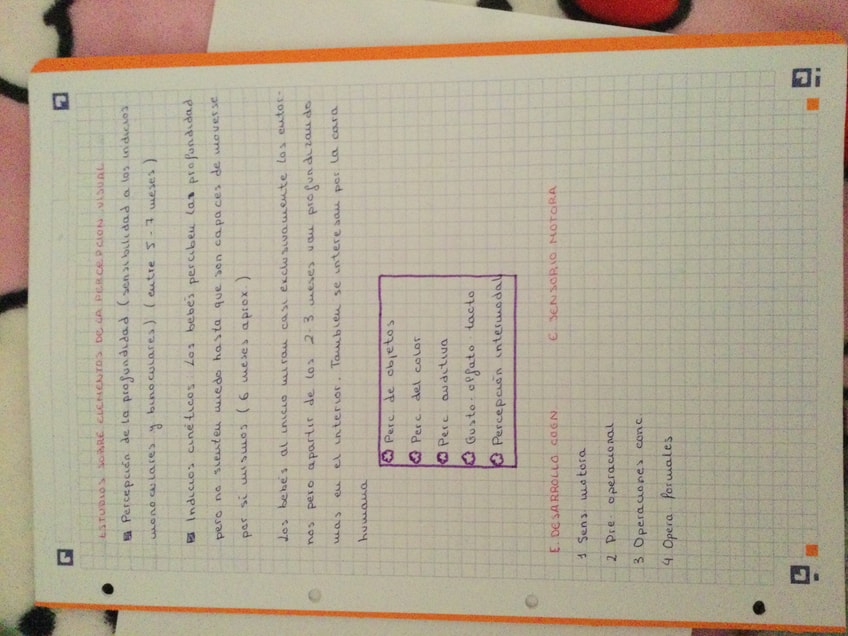 ESTUDIOS SOBRE ELEMENTOS DE LA PERCEPCION VISUAL
Percepción de la profundidad (sensibilidad a los indicios
monoculares y binoculares) (entre 5-7 meses)
Indicios cinéticos. Los bebés perciben las profundidad
pero no sienten miedo hasta que son capaces de moverse
por sí mismos (6 meses aprox.)
Los bebés al inicio miran casi exclusivamente los entor-
nos pero apartir de los 2-3 meses van profundizando
mas en el interior. Tambien se interesan por la cara
humana
Perc de objetos
Perc del color
Perc auditiva
Gusto. olfato tacto
Percepción intermodal
E DESARROLLO COGN E SENSORIO MOTORA
1 Sens motora
2 Pre. operacional
3 Operaciones conc
4 Opera formales